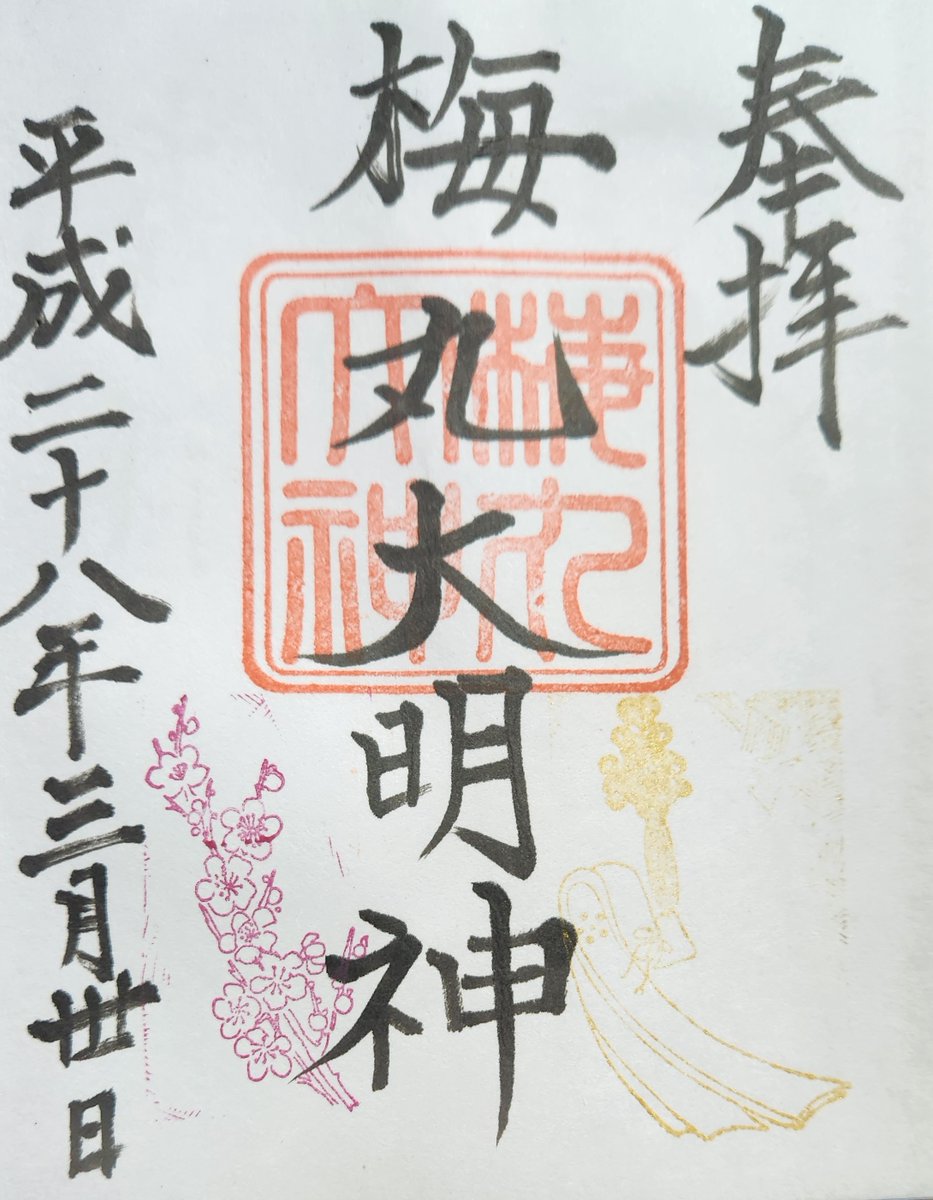 奉拝
梅丸大明神
梅丸
大神
平成二十八年三月丗日